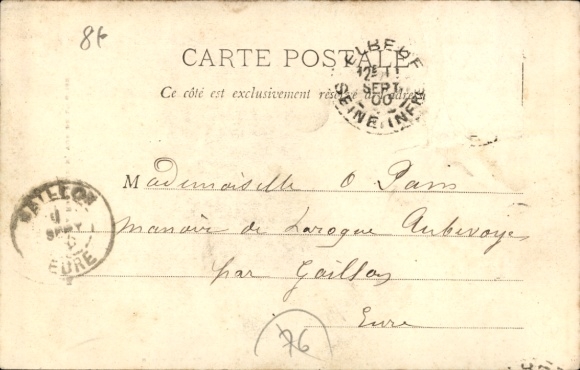 86
CARTE POSTALE
Ce côté est exclusivement réservé à l'adresse
ELBEUF
12E 11
SEPT
00
SEINE INFRE
Mademoiselle O Pain
GAILLON
11
SEPT
EURE
manoir de Laroque Aubevoye
par Gaillon
Eure
76